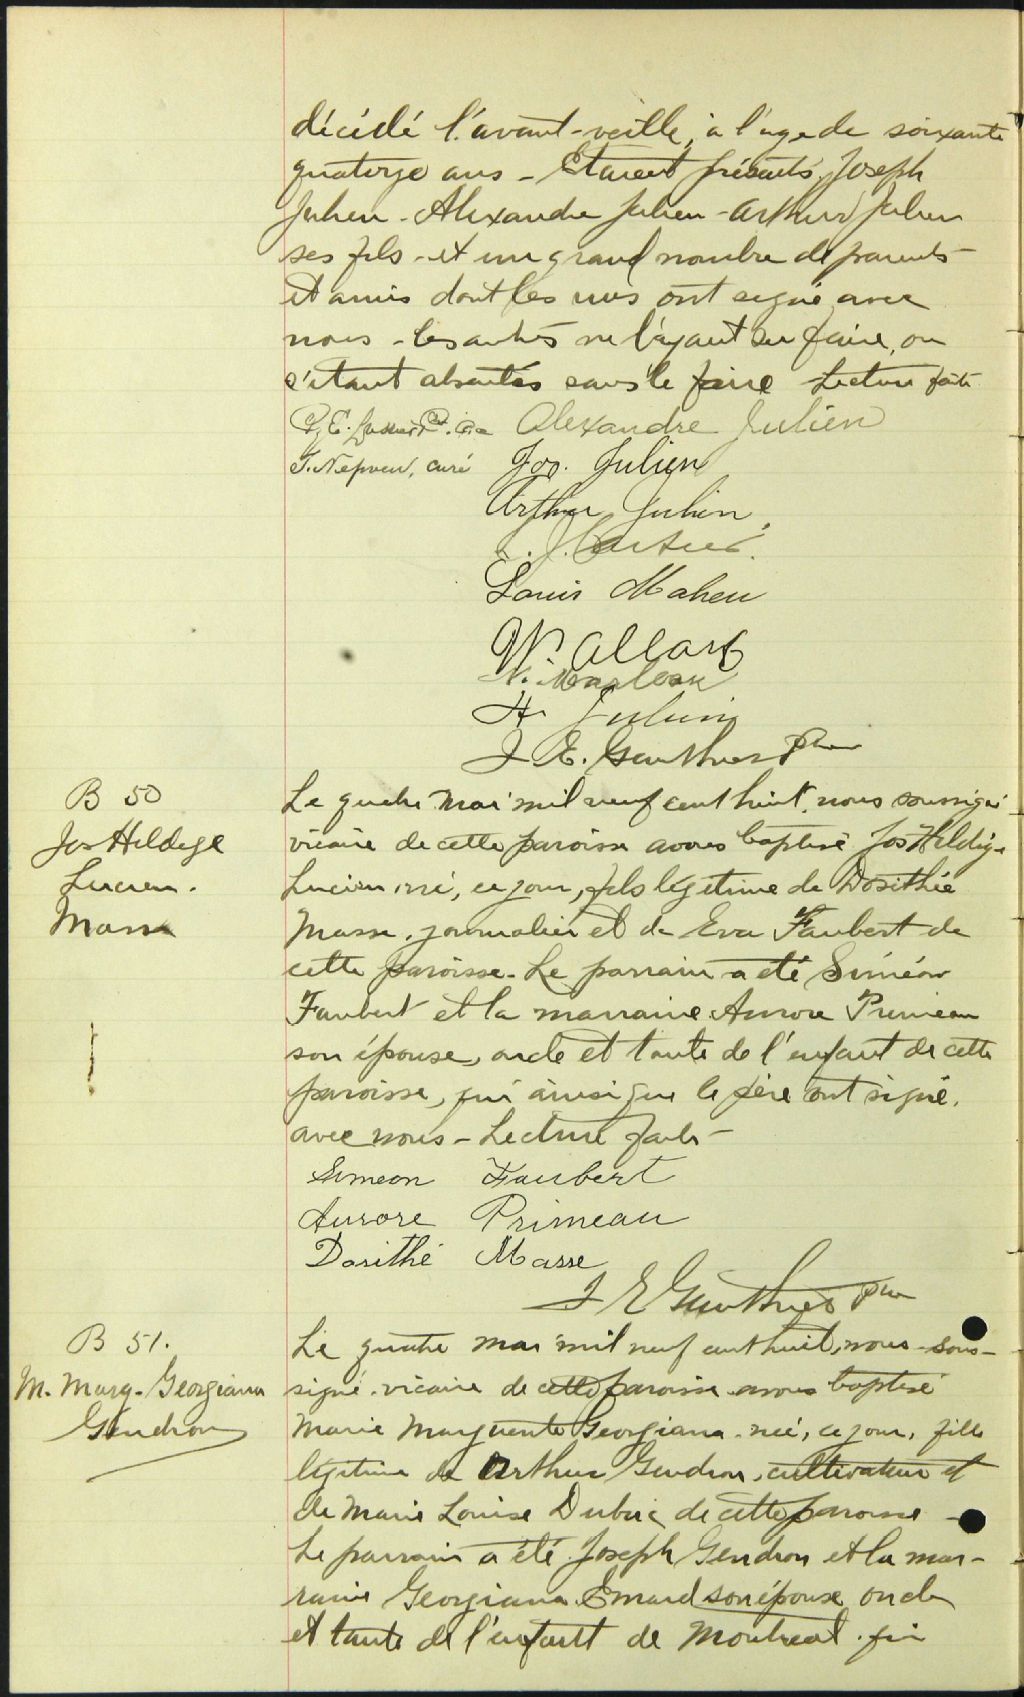 décédé l'avant-veille, à l'age de soixante
quatorze ans - Etaient présents, Joseph
Julien - Alexandre Julien - Arthur Julien
ses fils - et un grand nombre de parents
et amis dont les uns ont signé avec
nous - les autres ne l'ayant su faire, ou
s'étant absentés sans le faire Lecture faite
Alexandre Julien
T. Nepveu, curé Jos. Julien
Arthur Julien
J. Cartier
Louis Maheu
W. Allard
H. Julien
J. E. Gauthier ptre
B 50
Jos Hildege
Lucien.
Masse
Le quatre Mai mil neuf cent huit, nous soussigné
vicaire de cette paroisse avons baptisé Jos Hildège
Lucien, né, ce jour, fils légitime de Dosithée
Masse, journalier et de Eva Faubert de
cette paroisse. Le parrain a été Siméon
Faubert et la marraine Aurore Primeau
son épouse, oncle et tante de l'enfant de cette
paroisse, qui ainsi que le père ont signé,
avec nous - Lecture faite -
Simeon Faubert
Aurore Primeau
Dosithé Masse
J E Gauthier ptre
B 51.
M. Marg. Georgiana
Gendron
Le quatre mai mil neuf cent huit, nous sous-
signé, vicaire de cette paroisse avons baptisé
Marie Marguerite Georgiana née, ce jour, fille
légitime de Arthur Gendron, cultivateur et
de Marie Louise Dubuc de cette paroisse -
Le parrain a été Joseph Gendron et la mar-
raine Georgiana Emard son épouse oncle
et tante de l'enfant de Montreal. qui